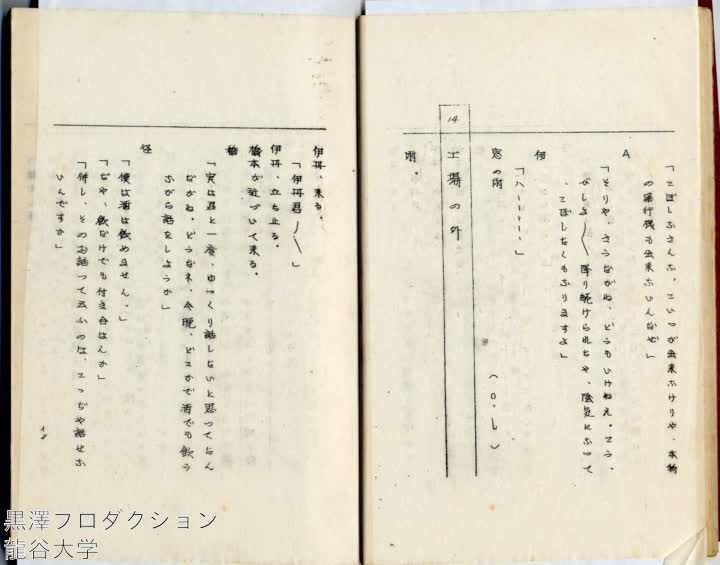 「こぼしなさんな、こいつが出来なけりや、本物
の飛行機も出来ないんだぜ」
A
「そりや、さうだがね、どうもいけねえ。こう、
びしょ〳〵降り続けられちや、陰気になって
、こぼしたくもなりますよ」
伊
「ハ………」
窓の雨
(O・L)
14
工場の外
雨。
伊丹、来る。
「伊丹君〳〵」
伊丹、立ち止る。
橋本が近づいて来る。
橋
「実は君と一度、ゆっくり話しないと思ってたん
だがね、どうだネ、今晩、どこかで酒でも飲み
ながら話をしようか」
「僕は酒は飲めません。」
「ぢや、飯だけでも付き合はんか」
「併し、そのお話って云ふのは、こっぢや話せな
いんですか」
18
黒澤プロダクション
龍谷大学